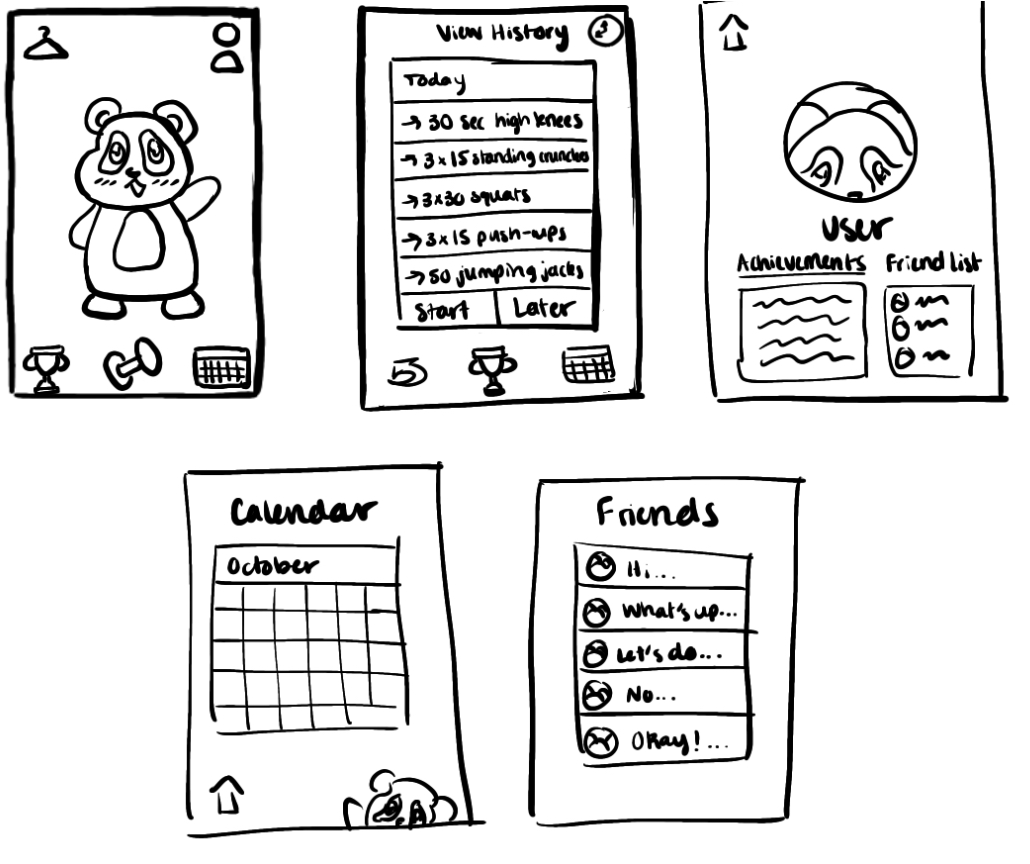 View History
Today
→ 30 sec high knees
→ 3 x 15 standing crunches
→ 3x30 squats
→ 3x15 push-ups
→ 50 jumping jacks
Start Later
User
Achievements Friend list
Calendar
October
Friends
Hi...
What's up...
Let's do...
No...
Okay! ...